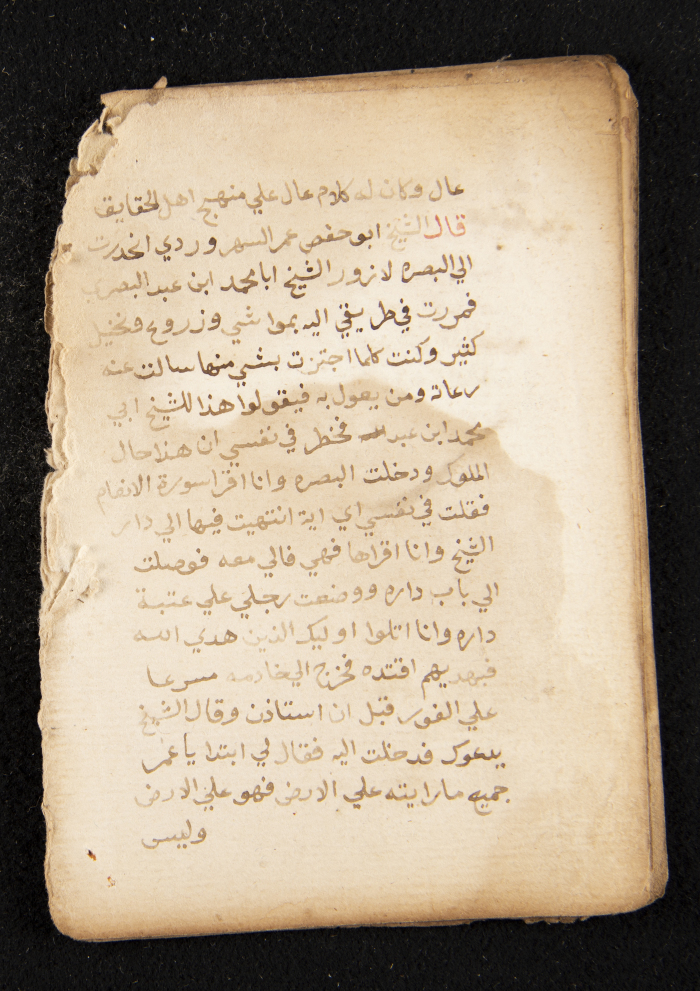 عال وكان له كلام عال علي منهج اهل الحقايق
قال الشيخ ابو حفص عمر السهروردي انحدرت
الي البصره لازور الشيخ ابا محمد ابن عبد البصري
فمررت في طريقي اليه بمواشي وزروع ونخيل
كثير وكنت كلما اجتزت بشي منها سالت عنه
رعاته ومن يعول به فيقولوا هذا للشيخ ابي
محمد ابن عبد الله فخطر في نفسي ان هذا حال
الملوك ودخلت البصره وانا اقرا سورة الانعام
فقلت في نفسي اي اية انتهيت فيها الي دار
الشيخ وانا اقراها فهي فالي معه فوصلت
الي باب داره ووضعت رجلي علي عتبة
داره وانا اتلوا اوليك الذين هدي الله
فبهديهم اقتده فخرج الي خادمه مسرعا
علي الفور قبل ان استاذن وقال الشيخ
يدعوك فدخلت اليه فقال لي ابتدا يا عمر
جميع ما رايته علي الارض فهو علي الارض
وليس